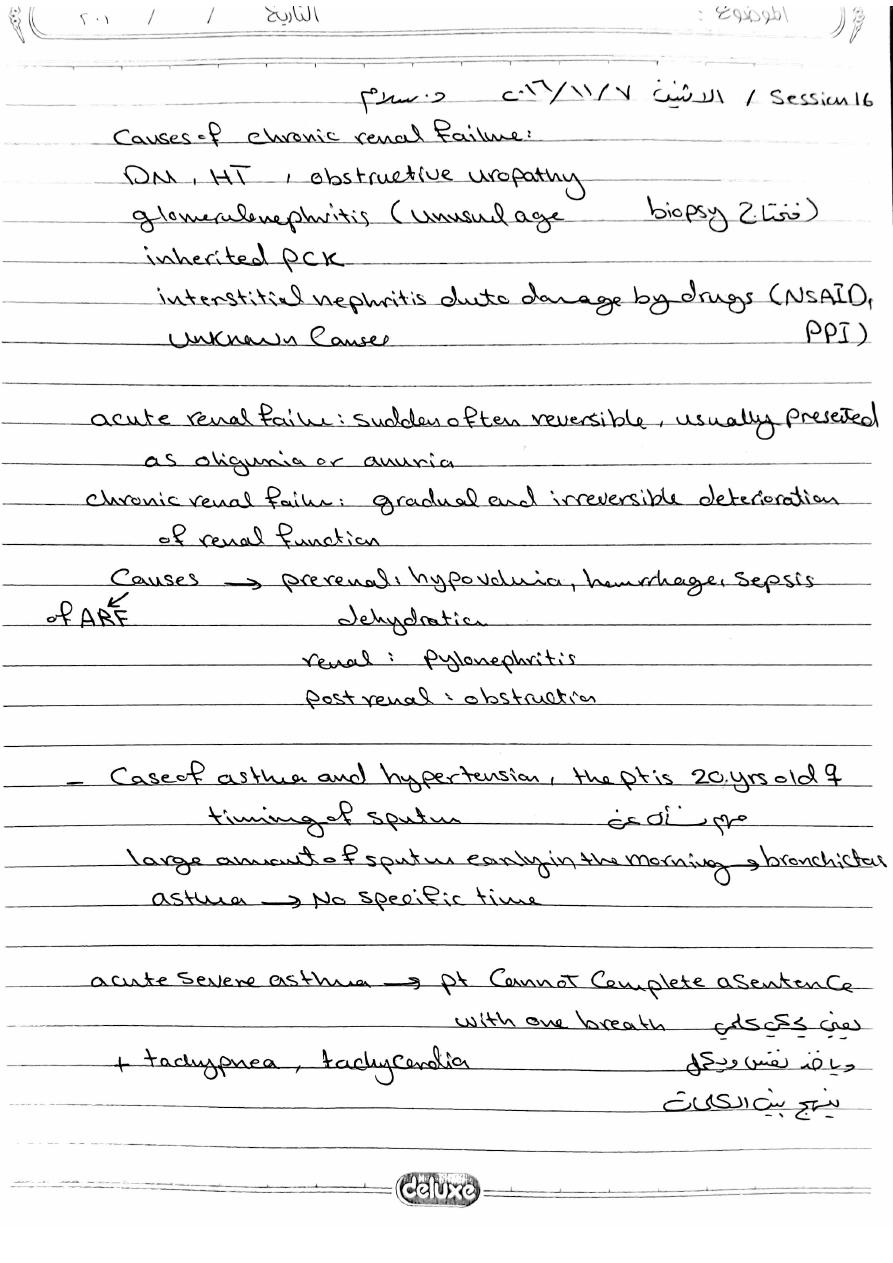 الموضوع : التاريخ / / ٢٠١
Session 16 / الاثنين ٢٠١٦/١١/٧ د. سلام
Causes of chronic renal failure:
DM, HT, obstructive uropathy
glomerulonephritis (unusual age فنحتاج biopsy)
inherited PCK
interstitial nephritis duto damage by drugs (NSAID,
PPI)
unknown Causes
acute renal failure: sudden often reversible, usually preseted
as oligunia or anuria
chronic renal failure: gradual and irreversible deterioration
of renal function
Causes → prerenal: hypovolumia, hemorrhage, sepsis
of ARF dehydration
renal : pylonephritis
post renal : obstruction
- Case of asthma and hypertension, the pt is 20 yrs old ♀
timing of sputum مهم نسأل عن
large amount of sputum early in the morning → bronchictas
asthma → No specific time
acute severe asthma → pt Cannot Complete a sentence
with one breath يعني يحكي كلمتين
+ tachypnea, tachycardia وياخذ نفس ويكمل
ينهج بين الكلمات
deluxe